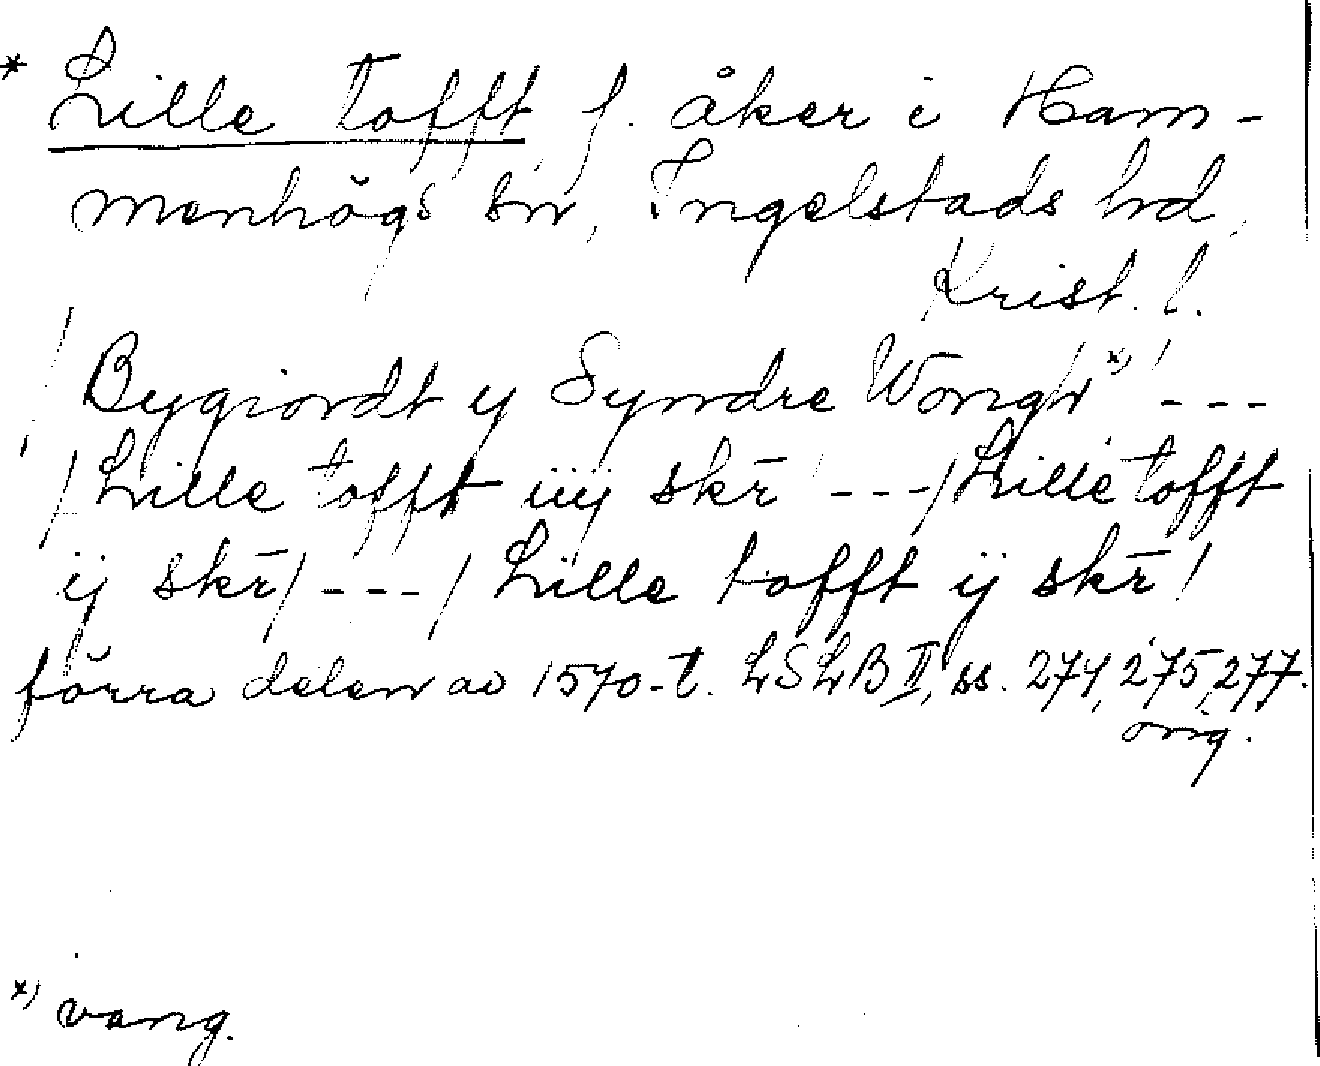 * Lille Tofft, f. åker i Ham-
menhögs sn, Ingelstads hd,
Krist. l.
/ Bygiordt y Syndre Wongh x) / ---
/ Lille tofft iiij skr̄ / --- / Lille tofft
ij skr̄ / --- / Lille tofft ij skr̄ /
förra delen av 1570-t. LSLB II, ss. 274, 275, 277.
orig.
x) vang.